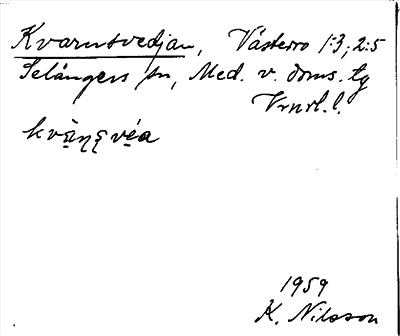 Kvarnsvedjan, Västerro 1:3; 2:5
Selångers sn, Med. v. doms. tg
Vrnrl. l.
1959
K. Nilsson